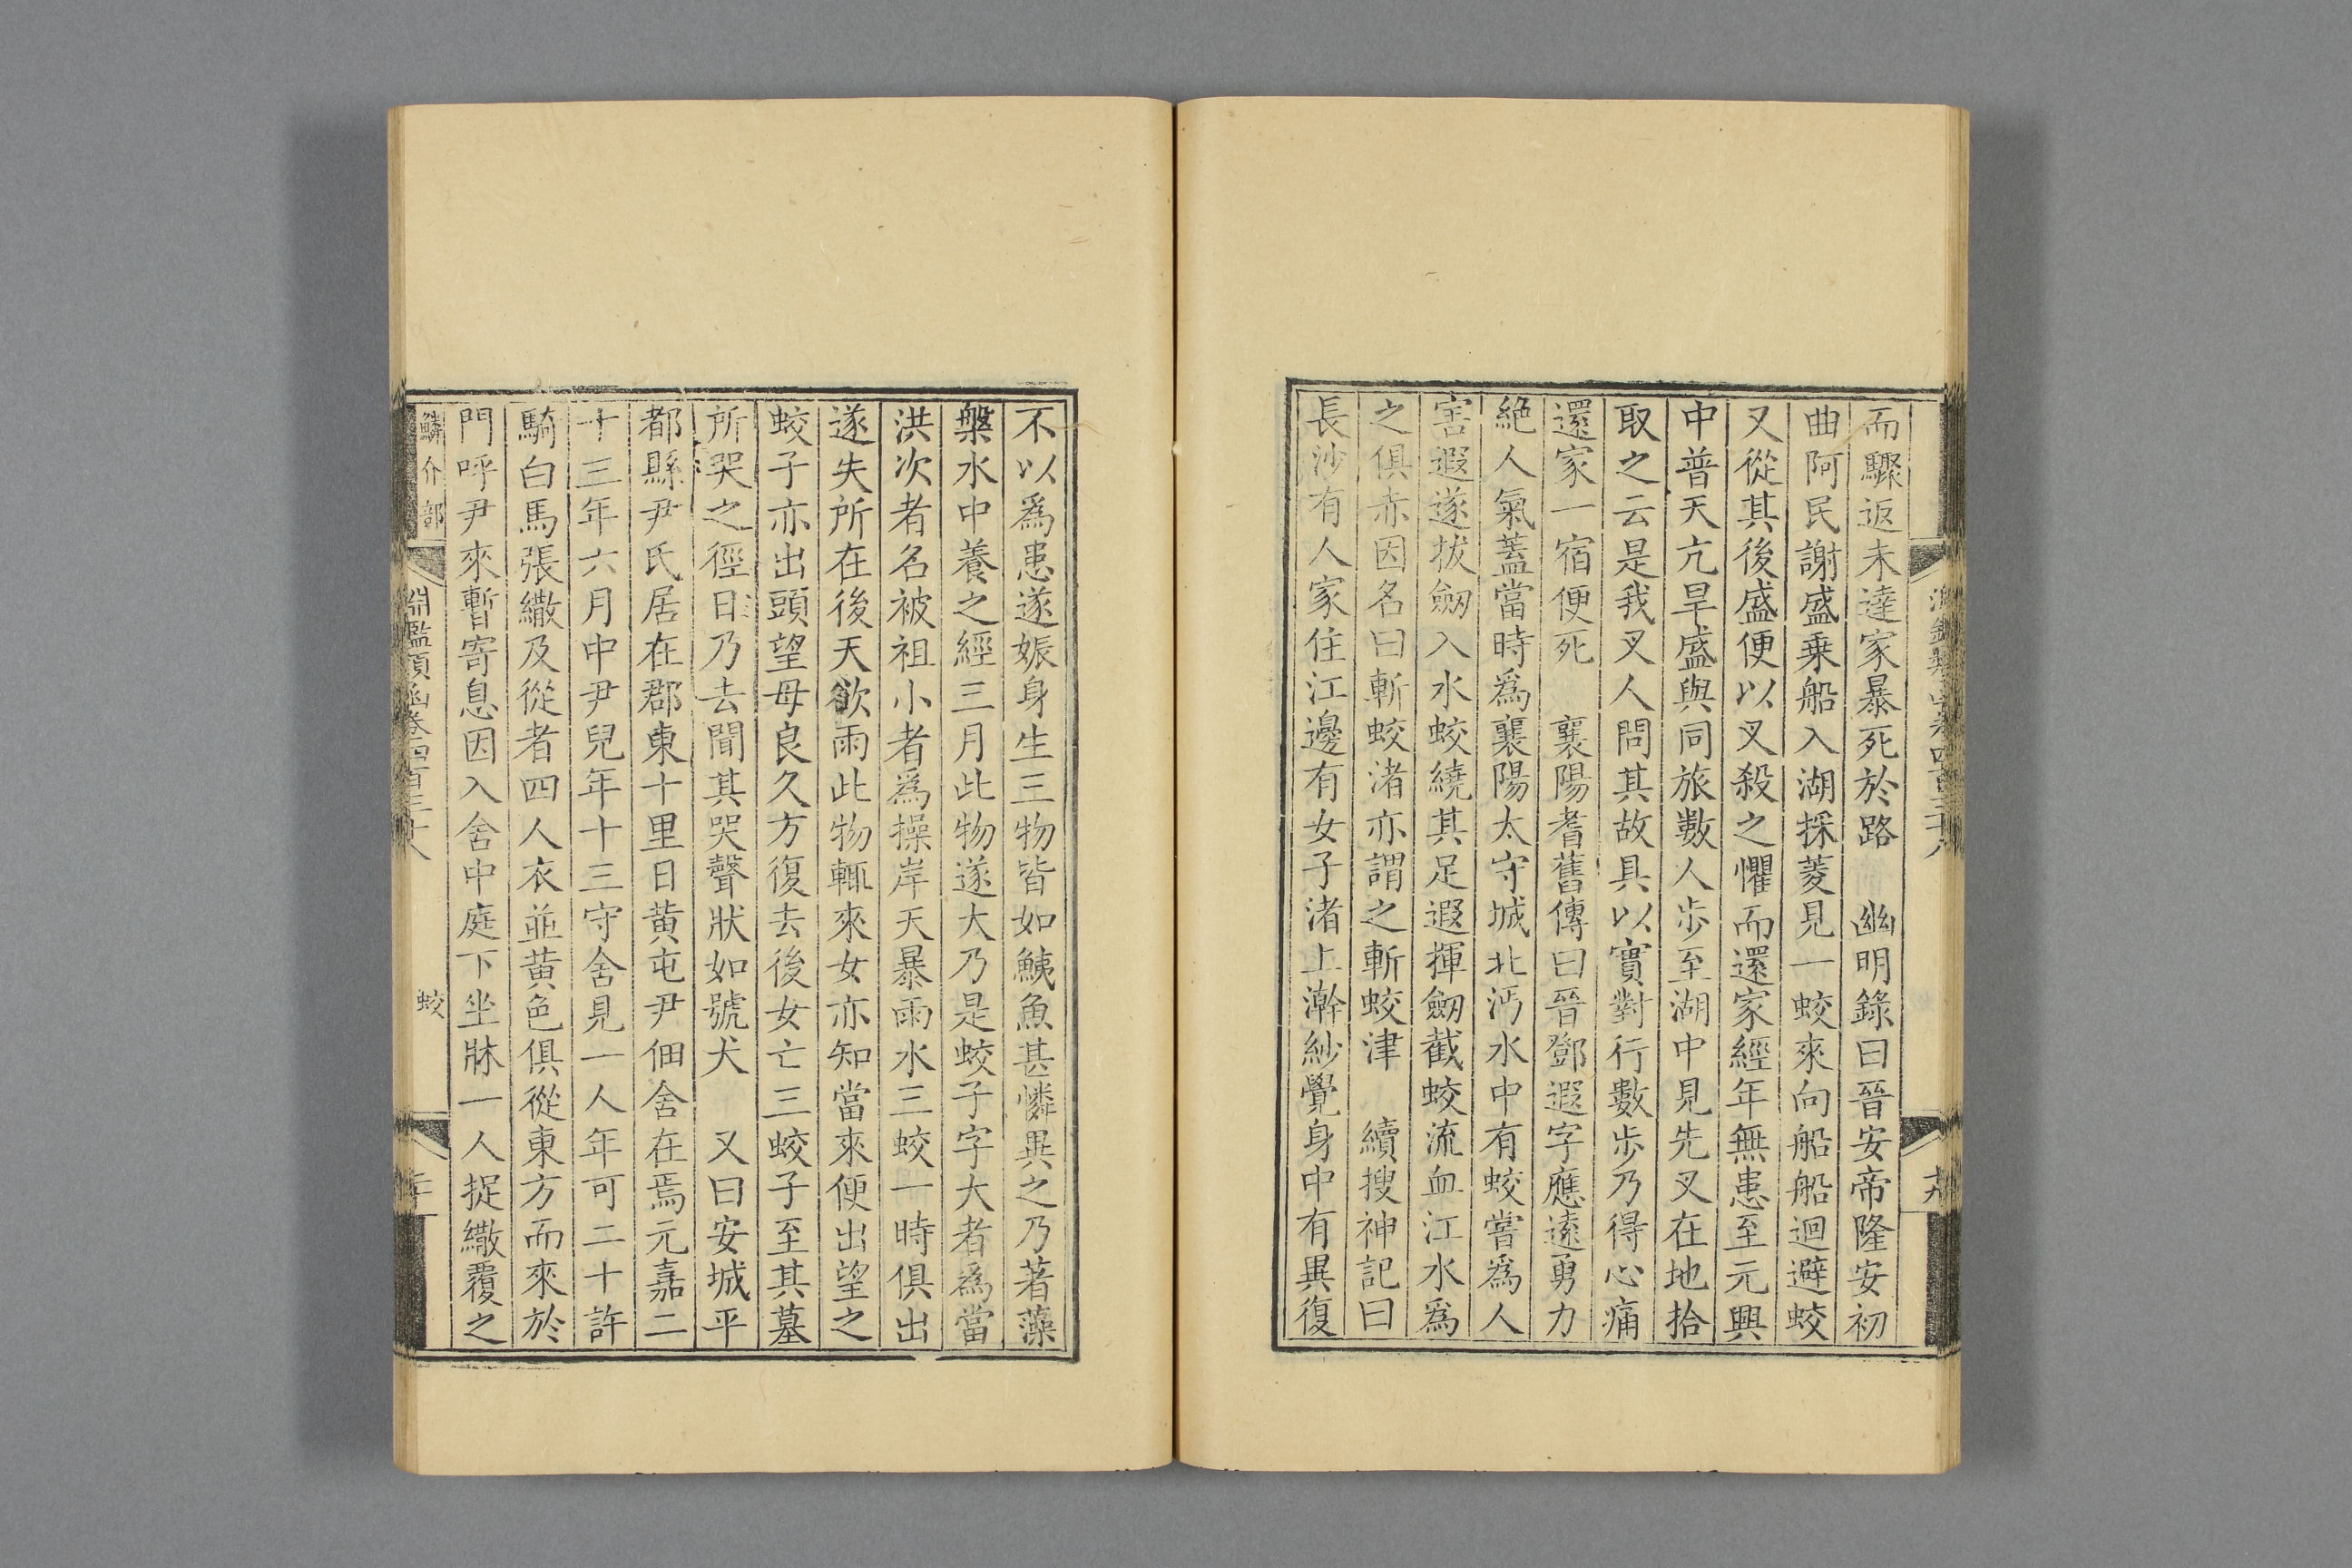 而驟返未達家暴死於路　幽明錄曰晉安帝隆安初
曲阿民謝盛乗船入湖採菱見一蛟來向船船迴避蛟
又從其後盛便以叉殺之懼而還家經年無患至元興
中普天亢旱盛與同旅數人步至湖中見先叉在地拾
取之云是我叉人問其故具以實對行數步乃得心痛
還家一宿便死　襄陽耆舊傳曰晉鄧遐字應遠勇力
絶人氣蓋當時爲襄陽太守城北沔水中有蛟嘗爲人
害遐遂拔劔入水蛟繞其足遐揮劔截蛟流血江水爲
之俱赤因名曰斬蛟渚亦謂之斬蛟津　續搜神記曰
長沙有人家住江邊有女子渚上澣紗覺身中有異復
十九
不以爲患遂娠身生三物皆如鮧魚甚憐異之乃著藻
槃水中養之經三月此物遂大乃是蛟子字大者爲當
洪次者名被祖小者爲操岸天暴雨水三蛟一時俱出
遂失所在後天欲雨此物輒來女亦知當來便出望之
蛟子亦出頭望母良久方復去後女亡三蛟子至其墓
所哭之徑日乃去聞其哭聲狀如號犬　又曰安城平
都縣尹氏居在郡東十里日黄屯尹佃舍在焉元嘉二
十三年六月中尹兒年十三守舍見一人年可二十許
騎白馬張繖及從者四人衣並黄色俱從東方而來於
門呼尹來暫寄息因入舍中庭下坐牀一人捉繖覆之
鱗介部
淵鑑類函卷四百三十八
蛟
二十